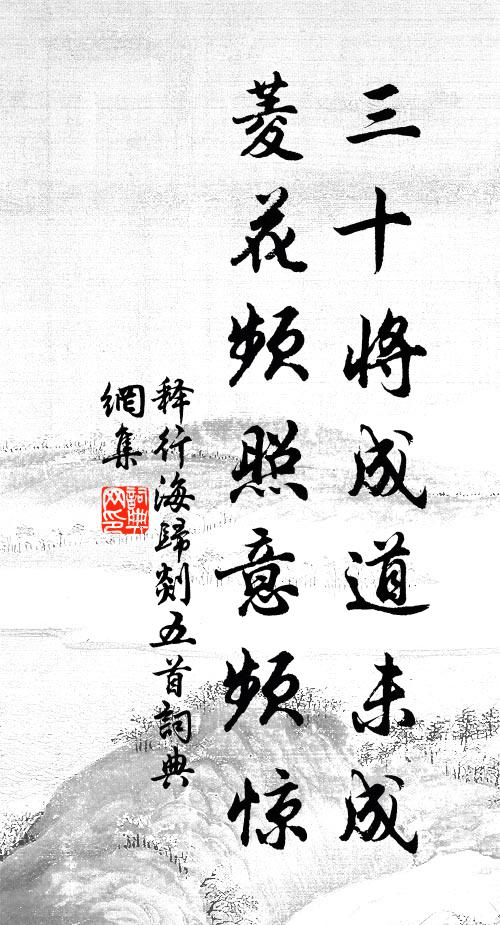 三十将成道未成
菱花频照意频惊
释行海歸剡五首詞典
網集
詞典
网印